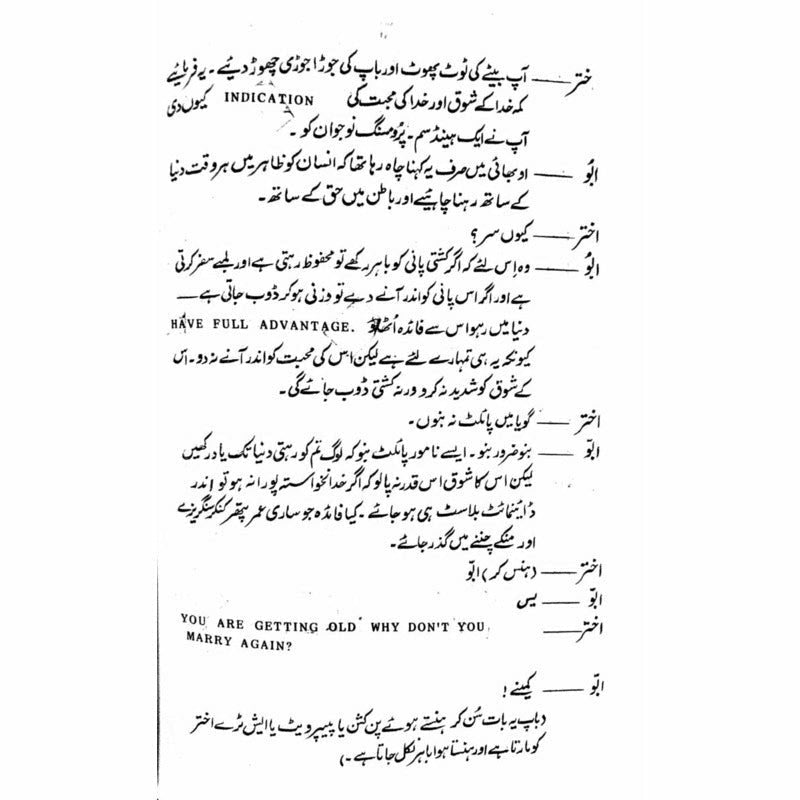 اختر ـــــ آپ بیٹے کی ٹوٹ پھوٹ اور باپ کی جوڑا جوڑی چھوڑ دیئیے۔ یہ فرمائیے
کہ خدا کے شوق اور خدا کی محبت کی INDICATION کیوں دی
آپ نے ایک ہینڈسم۔ پرُومسنگ نوجوان کو۔
ابوُ ـــــ او بھائی میں صرف یہ کہنا چاہ رہا تھا کہ انسان کو ظاہر میں ہر وقت دنیا
کے ساتھ رہنا چاہئیے اور باطن میں حق کے ساتھ۔
اختر ـــــ کیوں سر؟
ابوُ ـــــ وہ اِس لئے کہ اگر کشتی پانی کو باہر رکھے تو محفوظ رہتی ہے اور لمبے سفر کرتی
ہے اور اگر اس پانی کو اندر آنے دے تو وزنی ہو کر ڈوب جاتی ہے ـــ
دنیا میں رہو اس سے فائدہ اُٹھاؤ HAVE FULL ADVANTAGE.
کیونکہ یہ ہی تمہارے لئے ہے لیکن اس کی محبت کو اندر آنے نہ دو۔ اس
کے شوق کو شدید نہ کرو ورنہ کشتی ڈوب جائے گی۔
اختر ـــــ گویا میں پائلٹ نہ بنوں۔
ابوّ ـــــ بنو ضرور بنو۔ ایسے نامور پائلٹ بنو کہ لوگ تم کو رہتی دنیا تک یاد رکھیں
لیکن اس کا شوق اس قدر نہ پالو کہ اگر خدانخواستہ پورا نہ ہو تو اندر
ڈائینمائٹ بلاسٹ ہی ہو جائے۔ کیا فائدہ جو ساری عمر پتھر کنکر سنگریزے
اور منکے چننے میں گذر جائے۔
اختر ـــــ (ہنس کر) ابوّ
ابوّ ـــــ یس
اختر ـــــ YOU ARE GETTING OLD WHY DON'T YOU
MARRY AGAIN?
ابوّ ـــــ کمینے!
(باپ یہ بات سُن کر ہنستے ہوئے پن کشن یا پیپر ویٹ یا ایش ٹرے اختر
کو مارتا ہے اور ہنستا ہوا باہر نکل جاتا ہے۔)